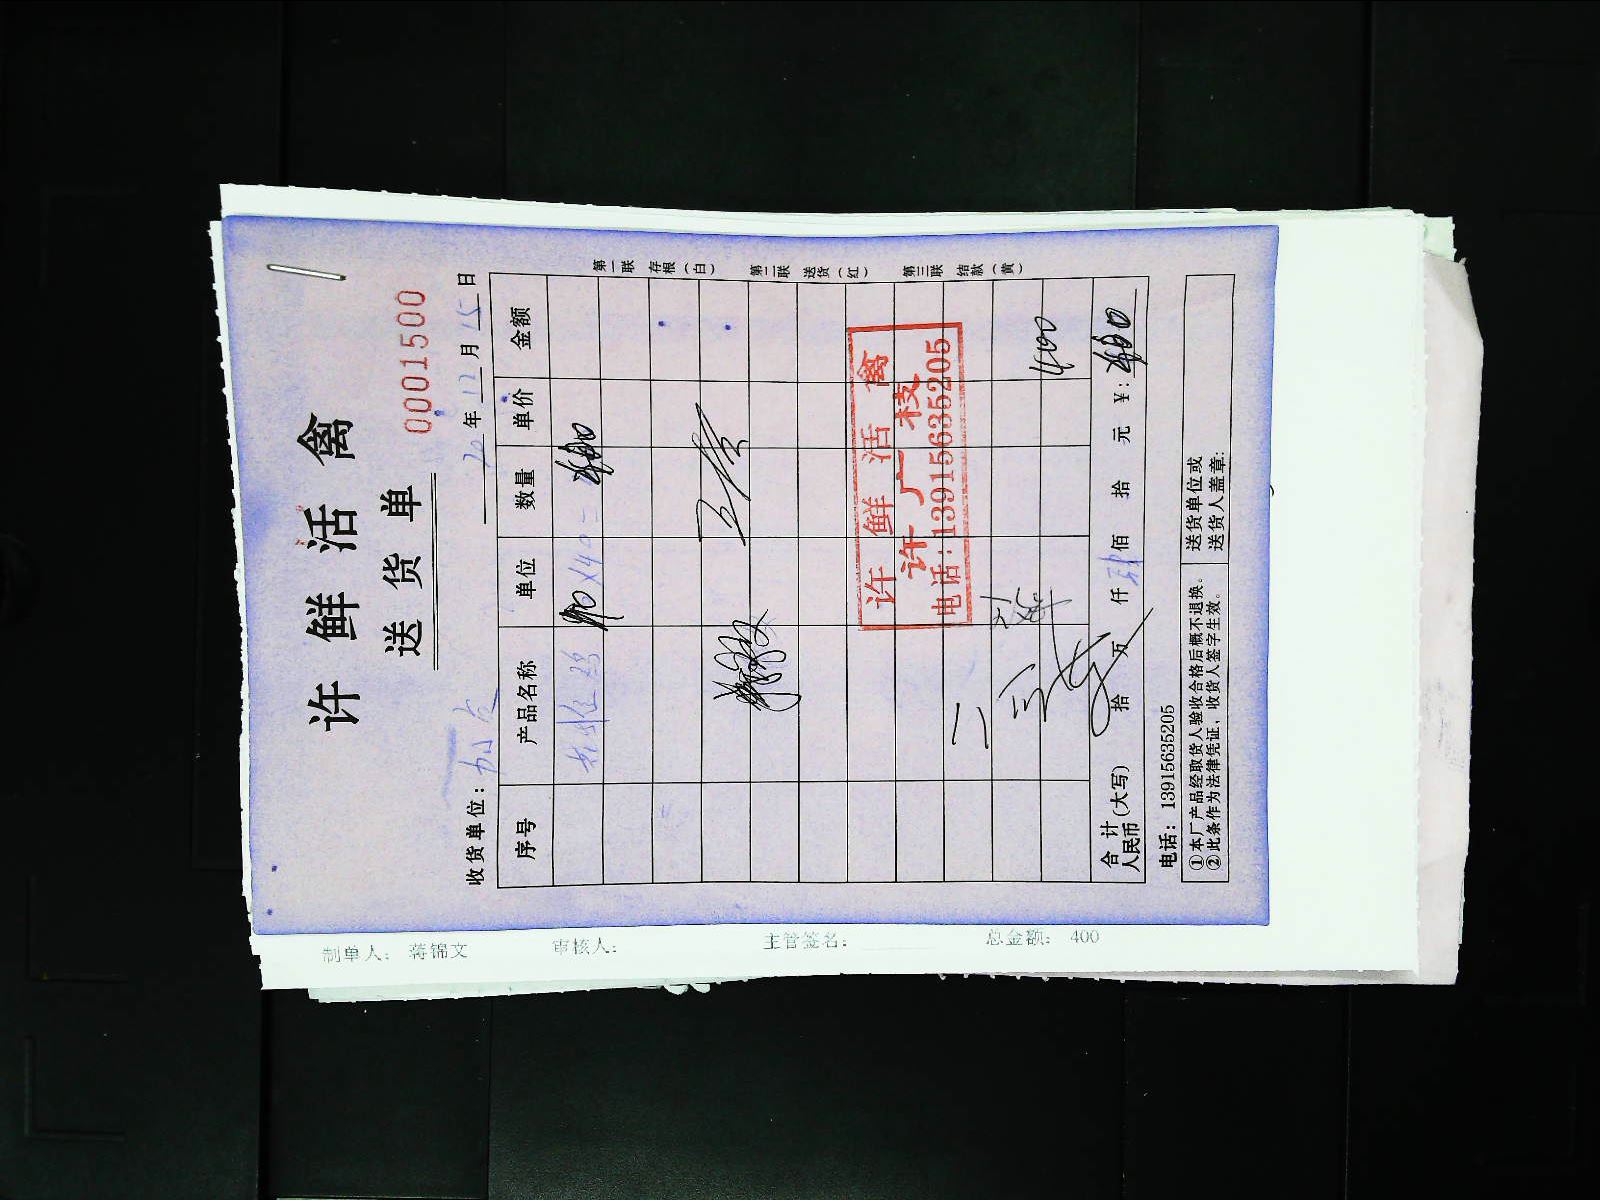 许鲜活禽
送货单
0001500
收货单位：
年 12 月 15 日
序号 产品名称 单位 数量 单价 金额
×40=
第一联 存根（白）
第二联 送货（红）
第三联 结款（黄）
许鲜活禽
许广枝
电话：13915635205
400
合计
人民币（大写） 拾 万 仟 佰 拾 元 ¥:
电话：13915635205
①本厂产品经取货人验收合格后概不退换。
②此条作为法律凭证，收货人签字生效。
送货单位或
送货人盖章:
制单人：蒋锦文 审核人： 主管签名： 总金额： 400